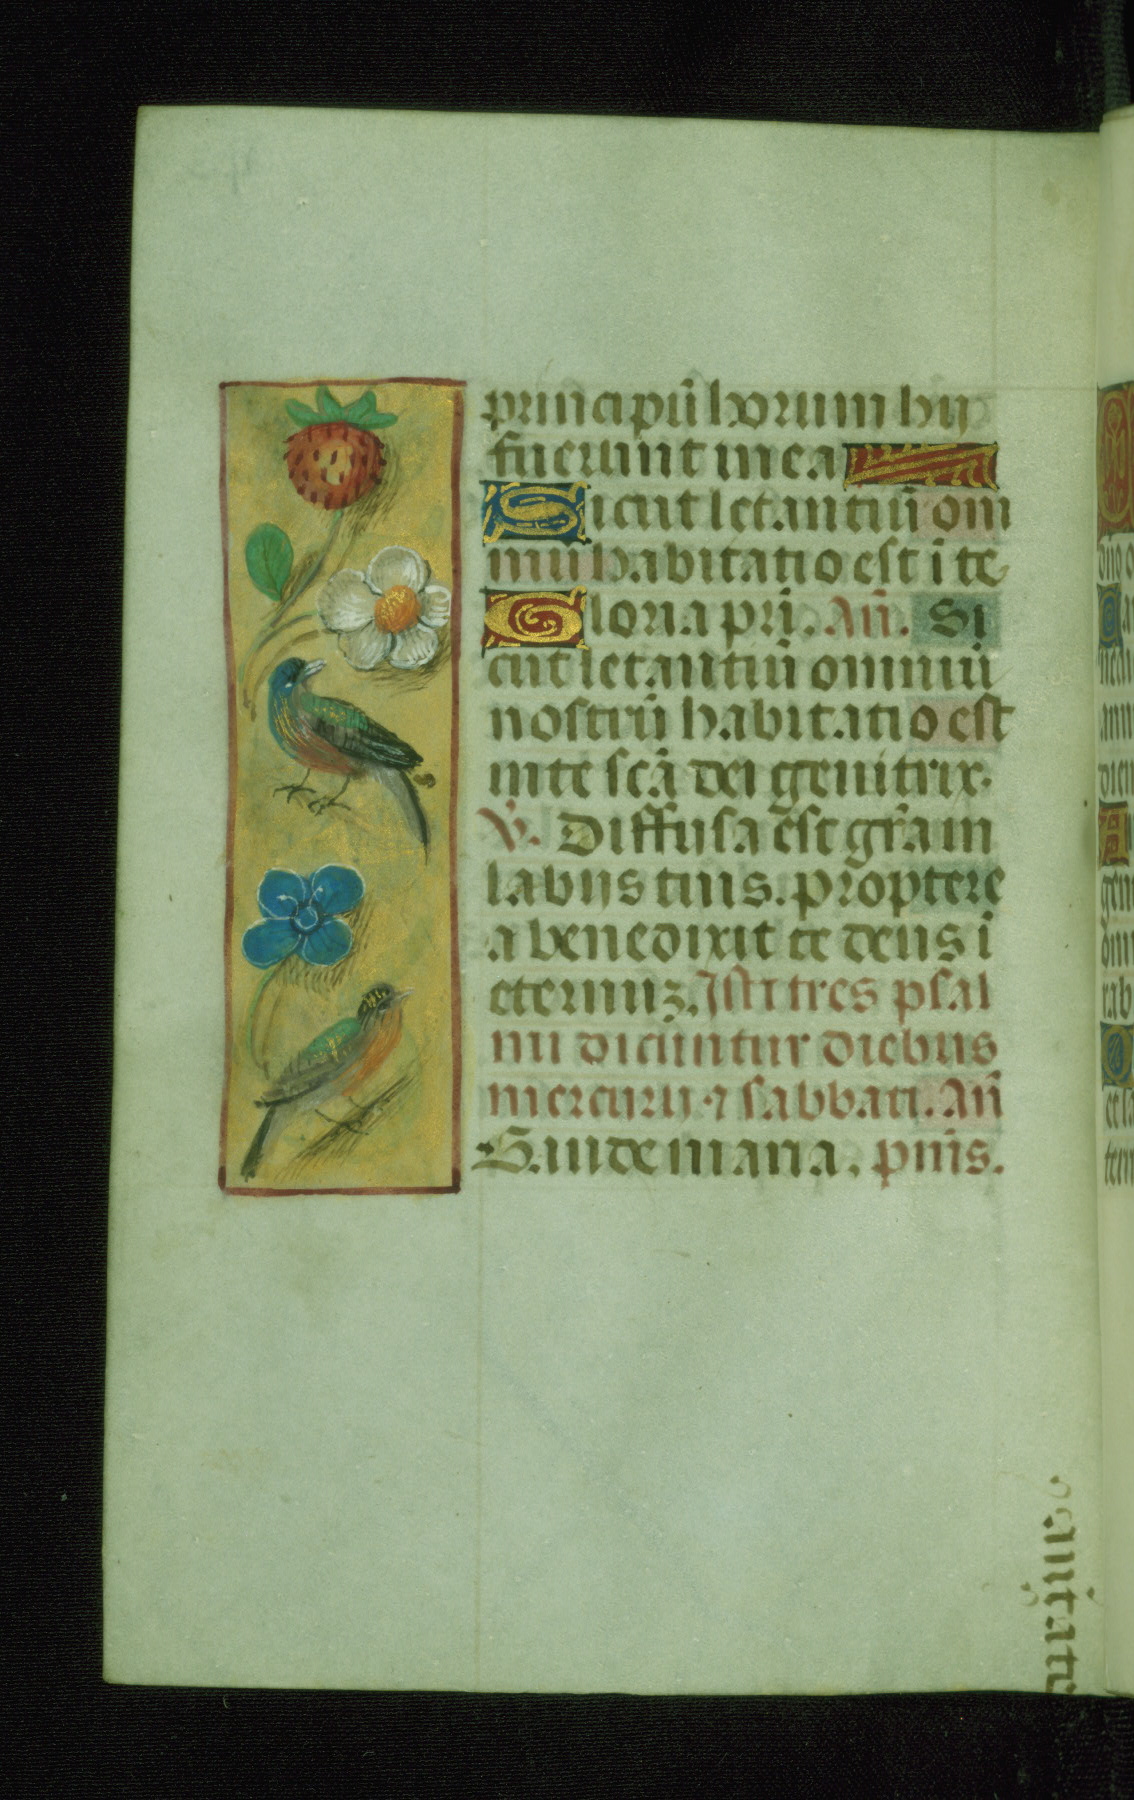 principiū horum hij
fuerunt in ea
Sicut letantiū om
niū habitatio est ī te
Gloria pr̄i. Añ. Si
cut letantiū omniū
nostrū habitatio est
in te scā dei genitrix.
V̄. Diffusa est gr̄a in
labijs tuis. Proptere
a benedixit te deus ī
eternuz. Isti tres psal
mi dicuntur diebus
mercurij ⁊ sabbati. Añ
Gaude maria. pm̄s.